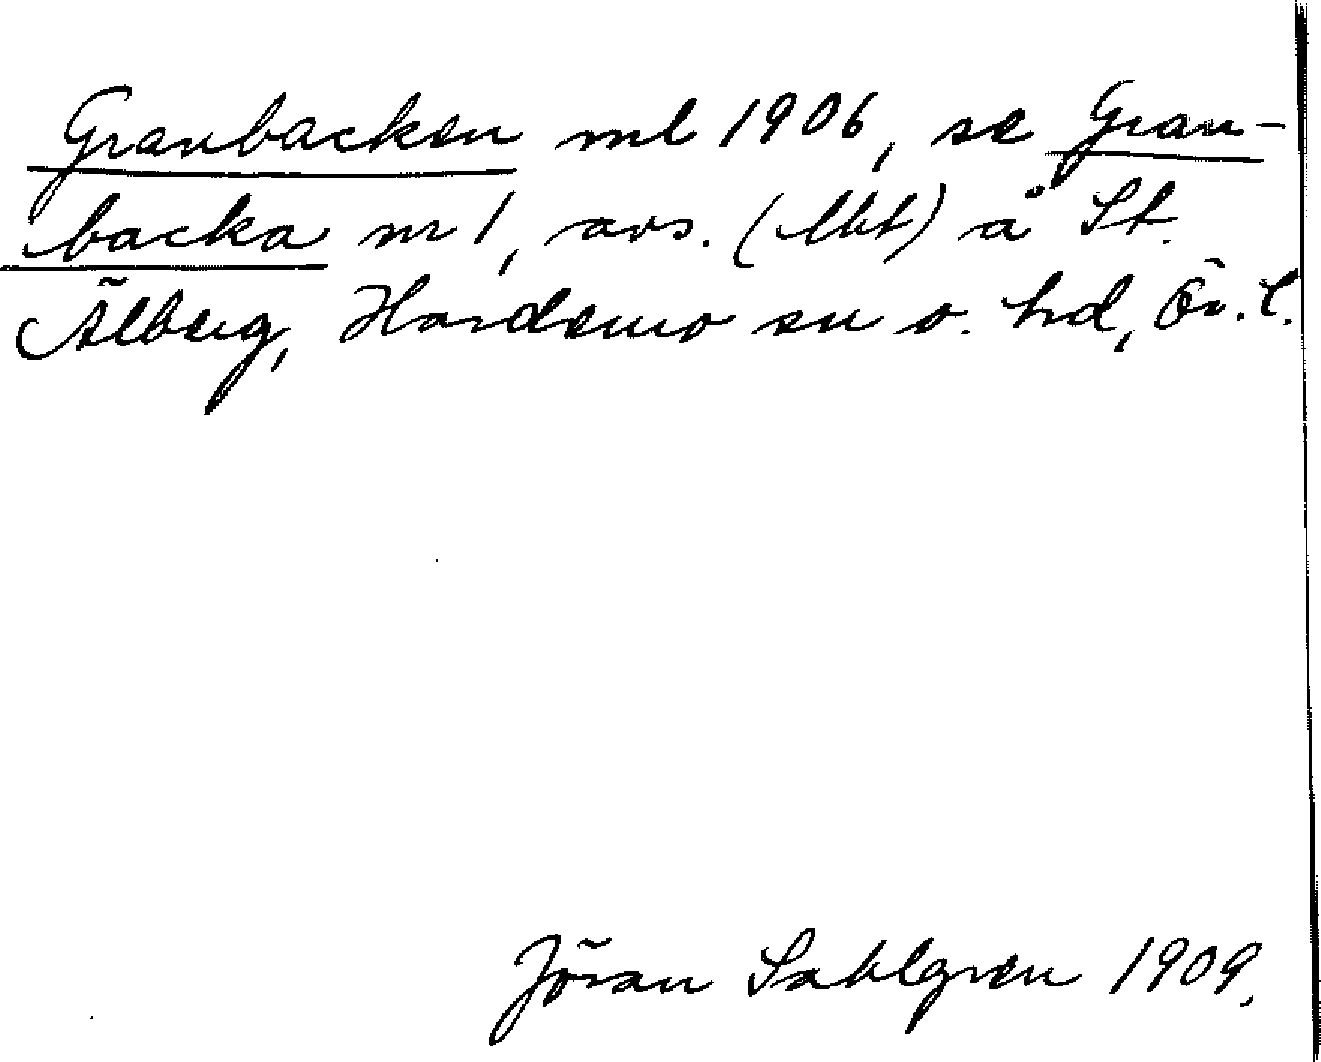 Granbacken ml 1906, se Gran-
backa nr 1, avs. (lht) å St.
Älberg, Hardemo sn o. hd, Ör. l.
Jöran Sahlgren 1909.